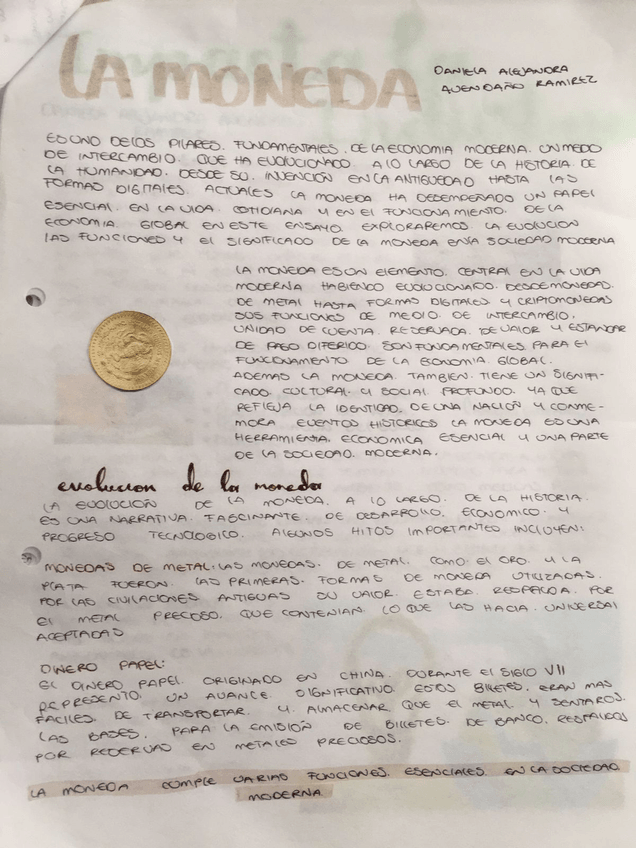 LA MONEDA
DANIELA ALEJANDRA
AVENDAÑO RAMIREZ
ES UNO DE LOS PILARES. FUNDAMENTALES. DE LA ECONOMIA MODERNA. UN MEDIO
DE INTERCAMBIO. QUE HA EVOLUCIONADO. A LO LARGO DE LA HISTORIA DE
LA HUMANIDAD. DESDE SU. INVENCIÓN EN LA ANTIGUEDAD HASTA LAS
FORMAS DIGITALES. ACTUALES LA MONEDA HA DESEMPEÑADO UN PAPEL
ESENCIAL. EN LA VIDA. COTIDIANA Y EN EL FUNCIONAMIENTO. DE LA
ECONOMIA. GLOBAL EN ESTE ENSAYO. EXPLORAREMOS. LA EVOLUCION
LAS FUNCIONES Y EL SIGNIFICADO DE LA MONEDA EN LA SOCIEDAD MODERNA
LA MONEDA ES UN ELEMENTO. CENTRAL EN LA VIDA
MODERNA HABIENDO EVOLUCIONADO. DESDE MONEDAS.
DE METAL HASTA FORMAS DIGITALES Y CRIPTOMONEDAS
SUS FUNCIONES DE MEDIO. DE INTERCAMBIO.
UNIDAD DE CUENTA. RESERVADA. DE VALOR Y ESTANDAR
DE PAGO DIFERIDO. SON FUNDAMENTALES. PARA EL
FUNCIONAMIENTO DE LA ECONOMIA. GLOBAL.
ADEMAS LA MONEDA. TAMBIEN. TIENE UN SIGNIFI-
CADO. CULTURAL. Y SOCIAL PROFUNDO. YA QUE
REFLEJA LA IDENTIDAD. DE UNA NACIÓN Y CONME-
MORA EVENTOS HISTORICOS LA MONEDA ES UNA
HERRAMIENTA. ECONOMICA ESENCIAL Y UNA PARTE
DE LA SOCIEDAD. MODERNA.
evolucion de la moneda
LA EVOLUCIÓN DE LA MONEDA. A LO LARGO. DE LA HISTORIA.
ES UNA NARRATIVA. FASCINANTE. DE DESARROLLO. ECONOMICO. Y
PROGRESO TECNOLOGICO. ALGUNOS HITOS IMPORTANTES INCLUYEN:
MONEDAS DE METAL: LAS MONEDAS. DE METAL. COMO. EL ORO. Y LA
PLATA FUERON. LAS PRIMERAS. FORMAS DE MONEDA UTILIZADAS.
POR LAS CIVILACIONES ANTIGUAS SU VALOR. ESTABA. RESPALDA. POR
EL METAL PRECIOSO. QUE CONTENIAN. LO QUE LAS HACIA. UNIVERSAL
ACEPTADAS
DINERO PAPEL:
EL DINERO PAPEL. ORIGINADO EN CHINA. DURANTE EL SIGLO VII
REPRESENTO. UN AVANCE SIGNIFICATIVO. ESTOS BILLETES. ERAN MAS
FACILES DE TRANSPORTAR. Y. ALMACENAR QUE EL METAL. Y SENTARON.
LAS BASES. PARA LA EMISIÓN DE BILLETES. DE BANCO. RESPALDOS
POR RESERVAS EN METALES PRECIOSOS.
LA MONEDA CUMPLE VARIAS FUNCIONES. ESENCIALES. EN LA SOCIEDAD
MODERNA